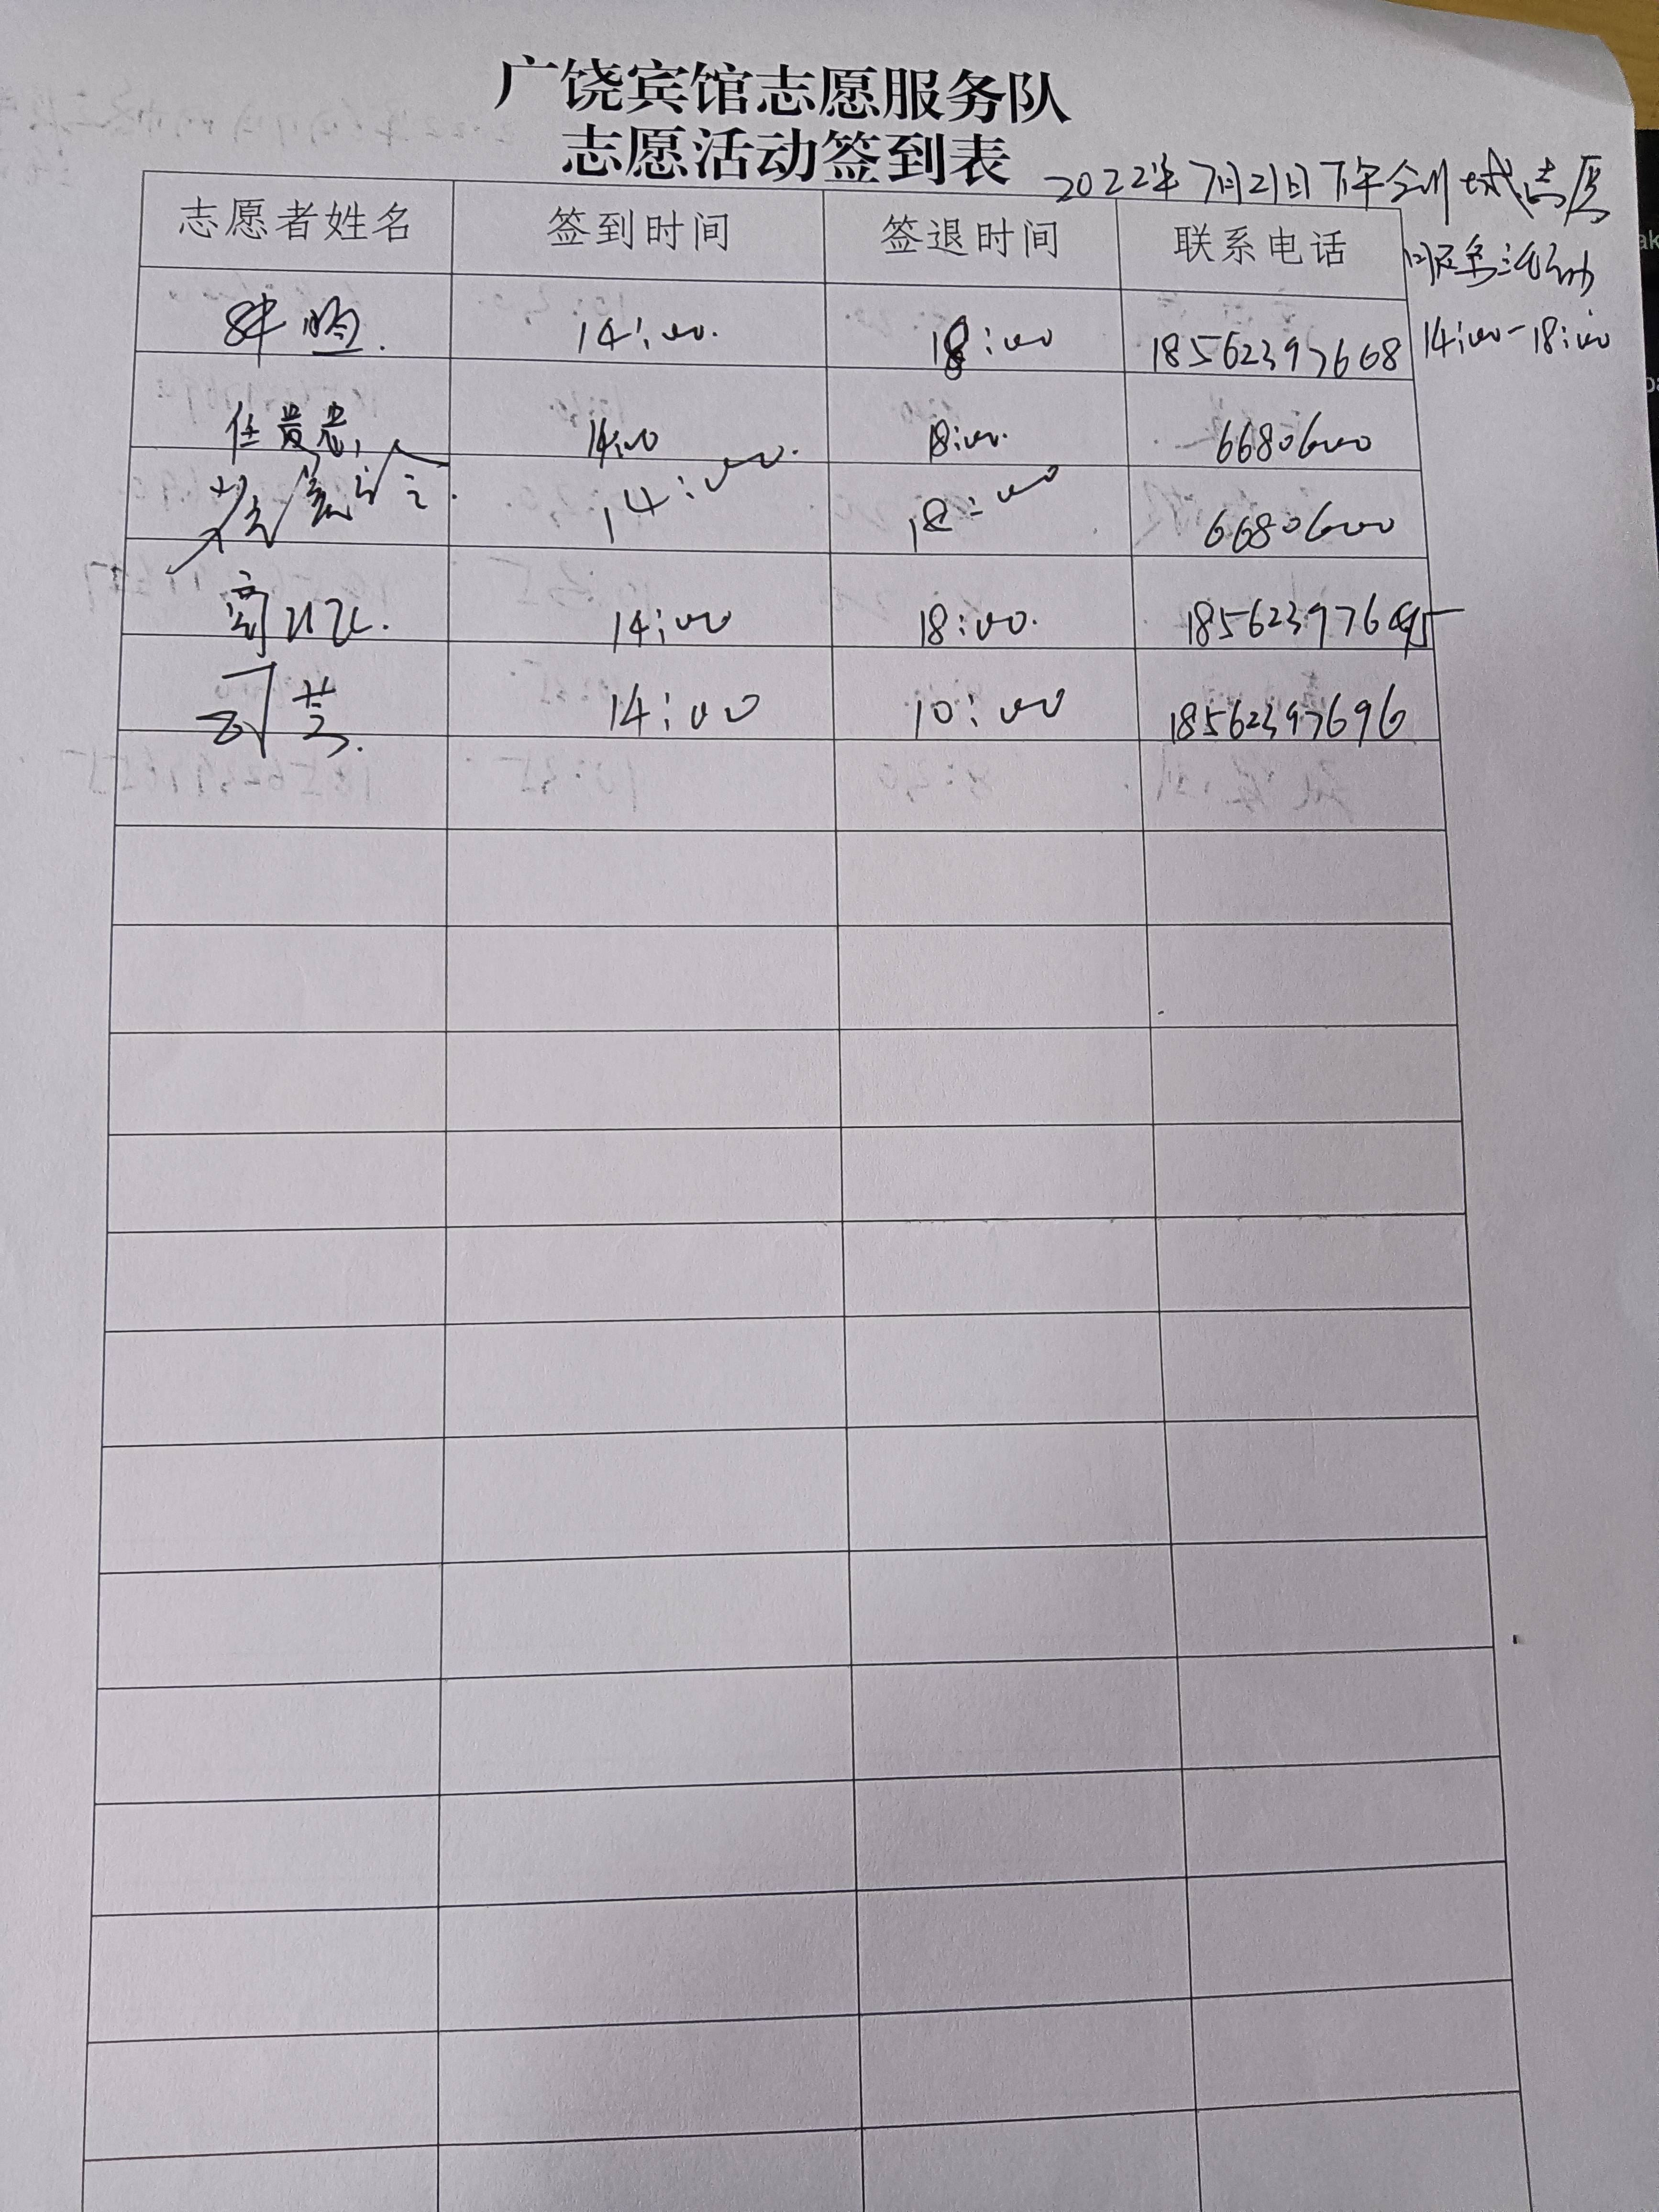 广饶宾馆志愿服务队
志愿活动签到表
2022年7月21日下午全 城志愿
服务活动
14:00-18:00
志愿者姓名 签到时间 签退时间 联系电话
14:00. 18:00 18562397668
任贵 14:00 18:00. 6680600
14:00. 18:00 6680600
14:00 18:00. 18562397695
14:00 10:00 18562397696